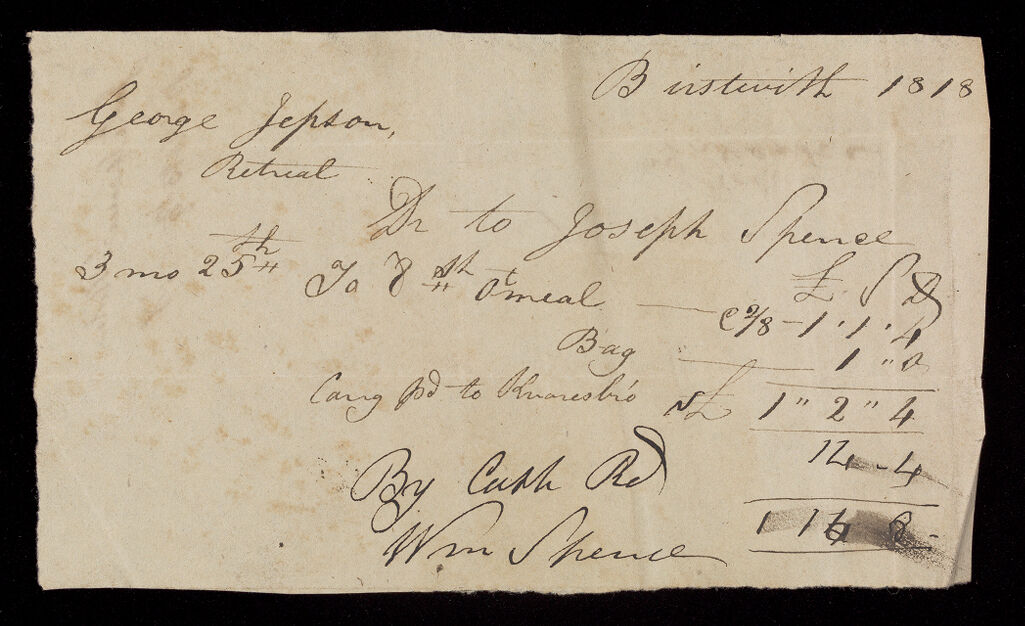 Birstwith 1818
George Jepson,
Retreat
Dr to Joseph Spence
£ S D
3 mo 25th To 8 st Otmeal — @ 2/8 - 1 " 1 " 4
Bag — 1 " 0
Carrg pd to Knaresbro £ 1 " 2 " 4
14 - 4
By Cash Rd
1 16 8
Wm Spence